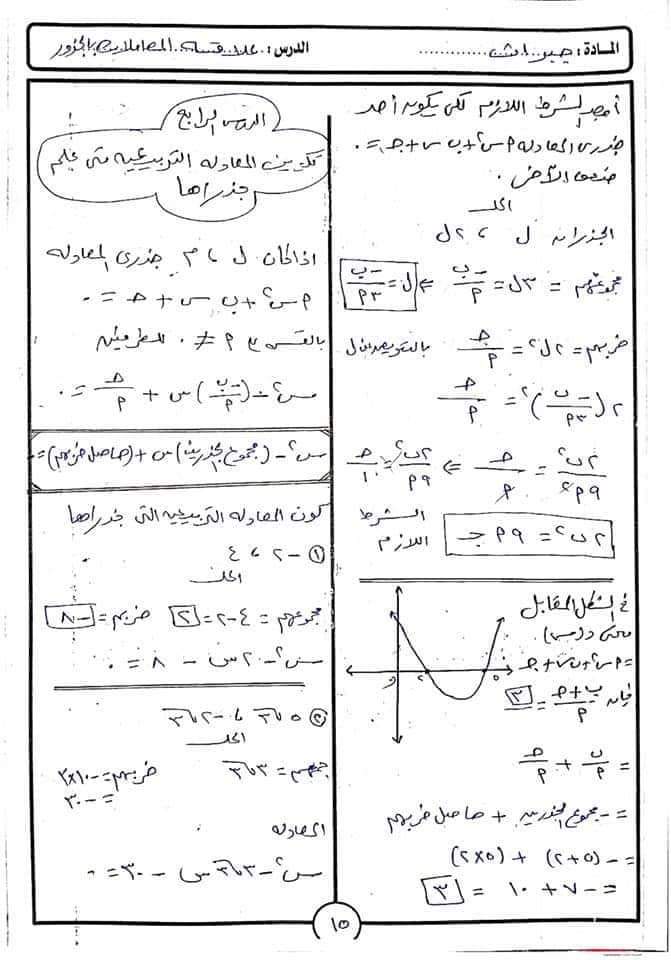 المادة : جبر ٣ ث
الدرس : علاقة المعاملات بالجذور
أوجد الشرط اللازم لكي يكون أحد
جذرى المعادلة م س٢ + ب س + جـ = ٠
ضعف الآخر .
الحل
الجذران ل ، ٢ل
مجموعهم = ٣ل = -ب/م ⇐ ل = -ب/٣م
ضربهم = ٢ل٢ = جـ/م بالتعويض عن ل
٢(-ب/٣م)٢ = جـ/م
٢ب٢/٩م٢ = جـ/م ⇐ ٢ب٢/٩م = جـ/١
٢ب٢ = ٩م جـ الشرط
اللازم
فى الشكل المقابل
منحنى د(س)
= م س٢ + ب س + جـ
فإن ب+جـ/م = ٣
و ٢ ٥
= ب/م + جـ/م
= - مجموع الجذرين + حاصل ضربهم
= -(٥+٢) + (٥×٢)
= -٧ + ١٠ = ٣
الدرس الرابع
تكوين المعادلة التربيعية متى علم
جذراها
اذا كان ل ، م جذرى المعادلة
م س٢ + ب س + جـ = ٠
بالقسمة م ≠ ٠ للطرفين
س٢ - (-ب/م) س + جـ/م = ٠
س٢ - (مجموع الجذرين) س + (حاصل ضربهم) = ٠
كون المعادلة التربيعية التى جذراها
① -٢ ، ٤
الحل
مجموعهم = ٤ - ٢ = ٢ ضربهم = -٨
س٢ - ٢س - ٨ = ٠
② ٥√٣ ، -٢√٣
الحل
جمعهم = ٣√٣ ضربهم = -١٠×٣
= -٣٠
المعادلة
س٢ - ٣√٣ س - ٣٠ = ٠
١٥